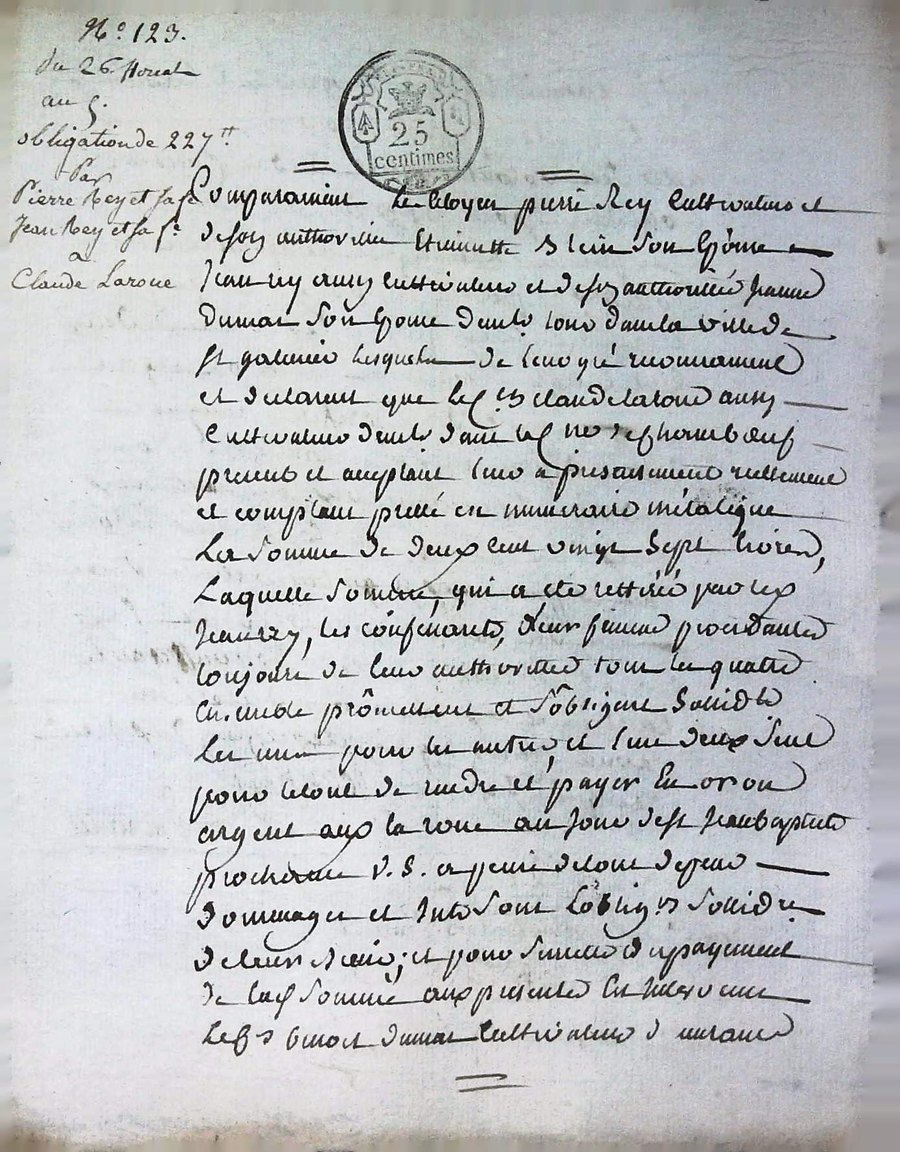 N.° 123.
du 26 floreal
an 5.
obligation de 227 tt
Par
Pierre Rey et sa fe
Jean Rey et sa fe
a
Claude Laroue
25
centimes
Comparaissent le citoyen pierre Rey cultivateur et
de soy authorisée son Epouse
Jean rey aussy cultivateur et de soy authorisée Jeanne
Dumas son Epouse dem.ts tous dans la ville de
st galmier lesquels de leur gré reconnaissent
et declarent que le c.en claude laroue aussy
cultivateur dem.t dans la c.ne de Chambœuf
present et acceptant leur a presentement reellement
et comptant pretté en numeraire métalique
La somme de deux cent vingt sept livres,
Laquelle somme, qui a eté rettirée par les
Jean rey, les confessants, leurs femmes procedantes
toujours de leur authorité tous les quatre
Ensemble promettent et s'obligent solid.t
les uns pour les autres et l'un d'eux seul
pour le tout de rendre et payer En or ou
argent aux laroue au jour de st Jean baptiste
prochaine V. S. a peine de tous depens
dommages et Int.ts sous l'oblig.on solid.re
de leurs biens; et pour surette du payement
de lad somme aux presentes Est Intervenu
Le c.en benoit dumas cultivateur